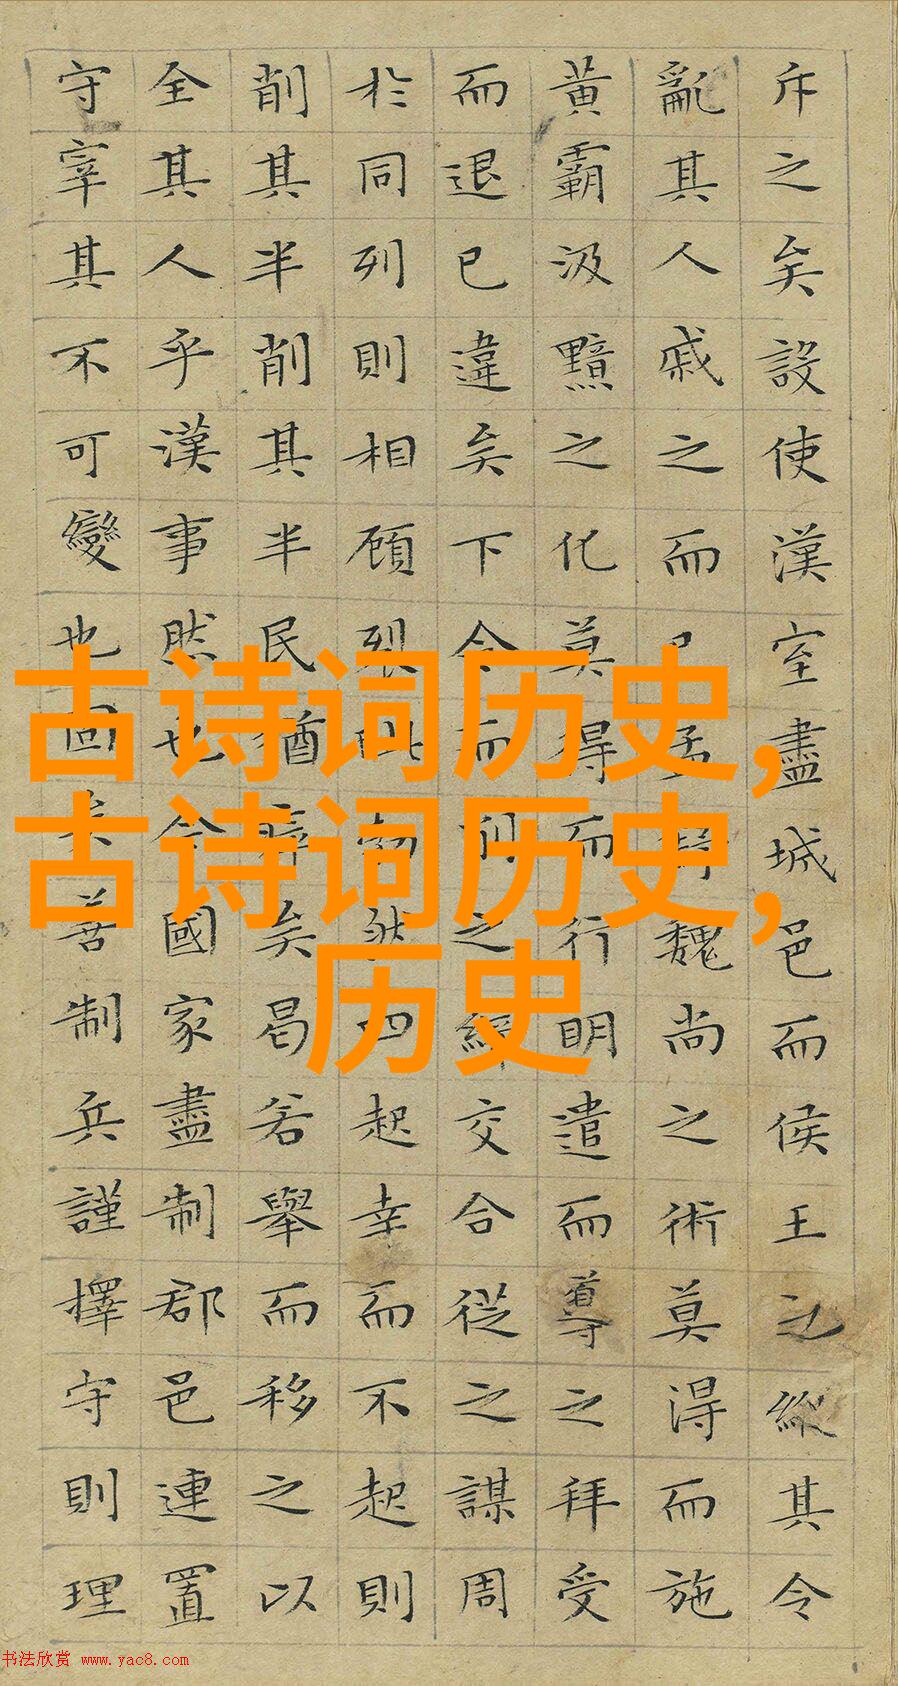 斥之矣設使漢室盡城邑而侯王之縱其令
亂其人戚之而孟魏尚之術莫得而施
黃霸汲黯之化莫得而行明遣而導之拜受
而退已違矣下令而削之締交合從之謀周
於同列則相顧裂勃然起幸而不起則
削其半削其半民猶瘁矣曷若舉而移之以
全其人乎漢事然也今國家盡制郡邑連置
守宰其不可變也固矣善制兵謹擇守則理
古诗词历史,
古诗词历史,
历史
书法欣赏 www.yac8.com